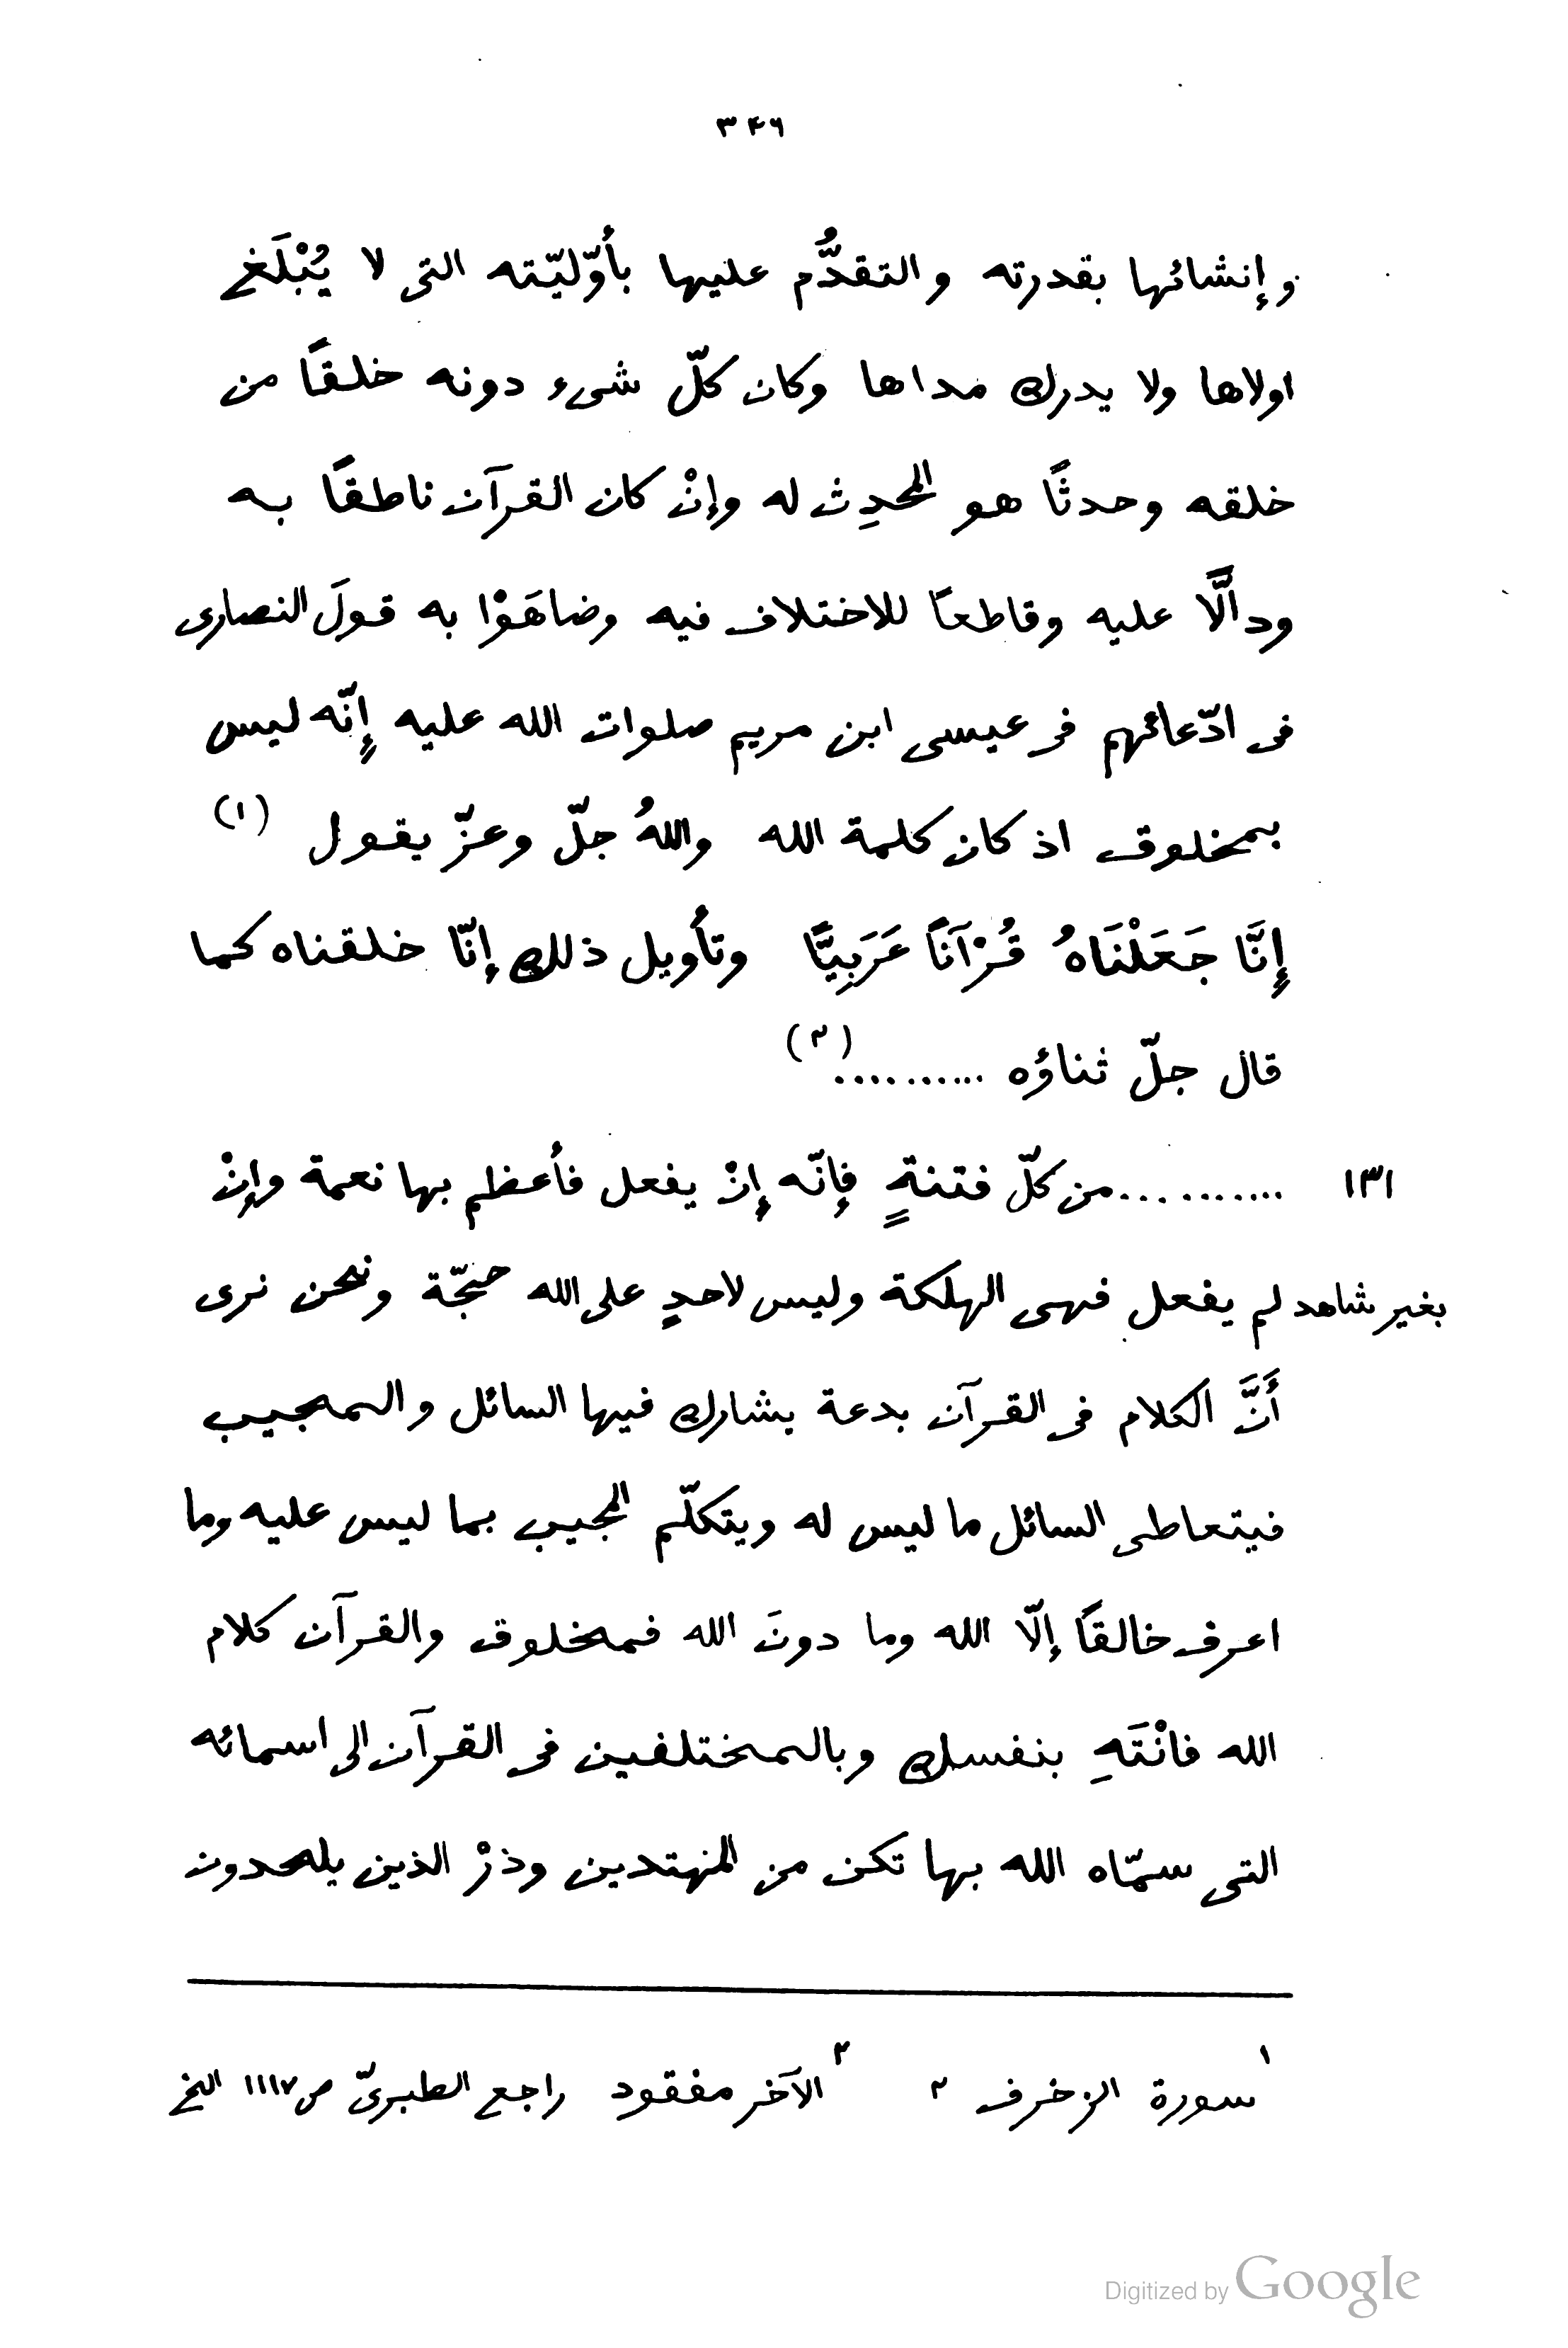 ٣٤٦
وإنشائها بقدرته والتقدُّم عليها بأوّليّته التى لا يُبْلَغ
اولاها ولا يدرك مداها وكان كلّ شىء دونه خلقًا من
خلقه وحدثًا هو المحدِث له وإنْ كان القرآن ناطقًا به
ودالًّا عليه وقاطعًا للاختلاف فيه وضاهَوْا به قولَ النصارى
فى ادّعائهم فى عيسى ابن مريم صلوات الله عليه إنّه ليس
بمخلوق اذ كان كلمة الله واللهُ جلّ وعزّ يقول (١)
إِنَّا جَعَلْنَاهُ قُرْآنًا عَرَبِيًّا وتأويل ذلك إنّا خلقناه كما
قال جلّ ثناؤه ........... (٢)
١٣١ ...........من كلّ فتنةٍ فإنّه إنْ يفعل فأعظم بها نعمة وإنْ
بغير شاهد لم يفعل فهى الهلكة وليس لاحدٍ على الله حجّة ونحن نرى
أَنَّ الكلام فى القرآن بدعة يشارك فيها السائل والمجيب
فيتعاطى السائل ما ليس له ويتكلّم المجيب بما ليس عليه وما
اعرف خالقًا إلّا الله وما دونَ الله فمخلوق والقرآن كلام
الله فانْتَهِ بنفسك وبالمختلفين فى القرآن الى اسمائه
التى سمّاه الله بها تكن من المهتدين وذرْ الذين يلحدون
١ سورة الزخرف ٢ ٢ الآخر مفقود راجع الطبرىّ ص ١١١٧ الخ
Digitized by Google